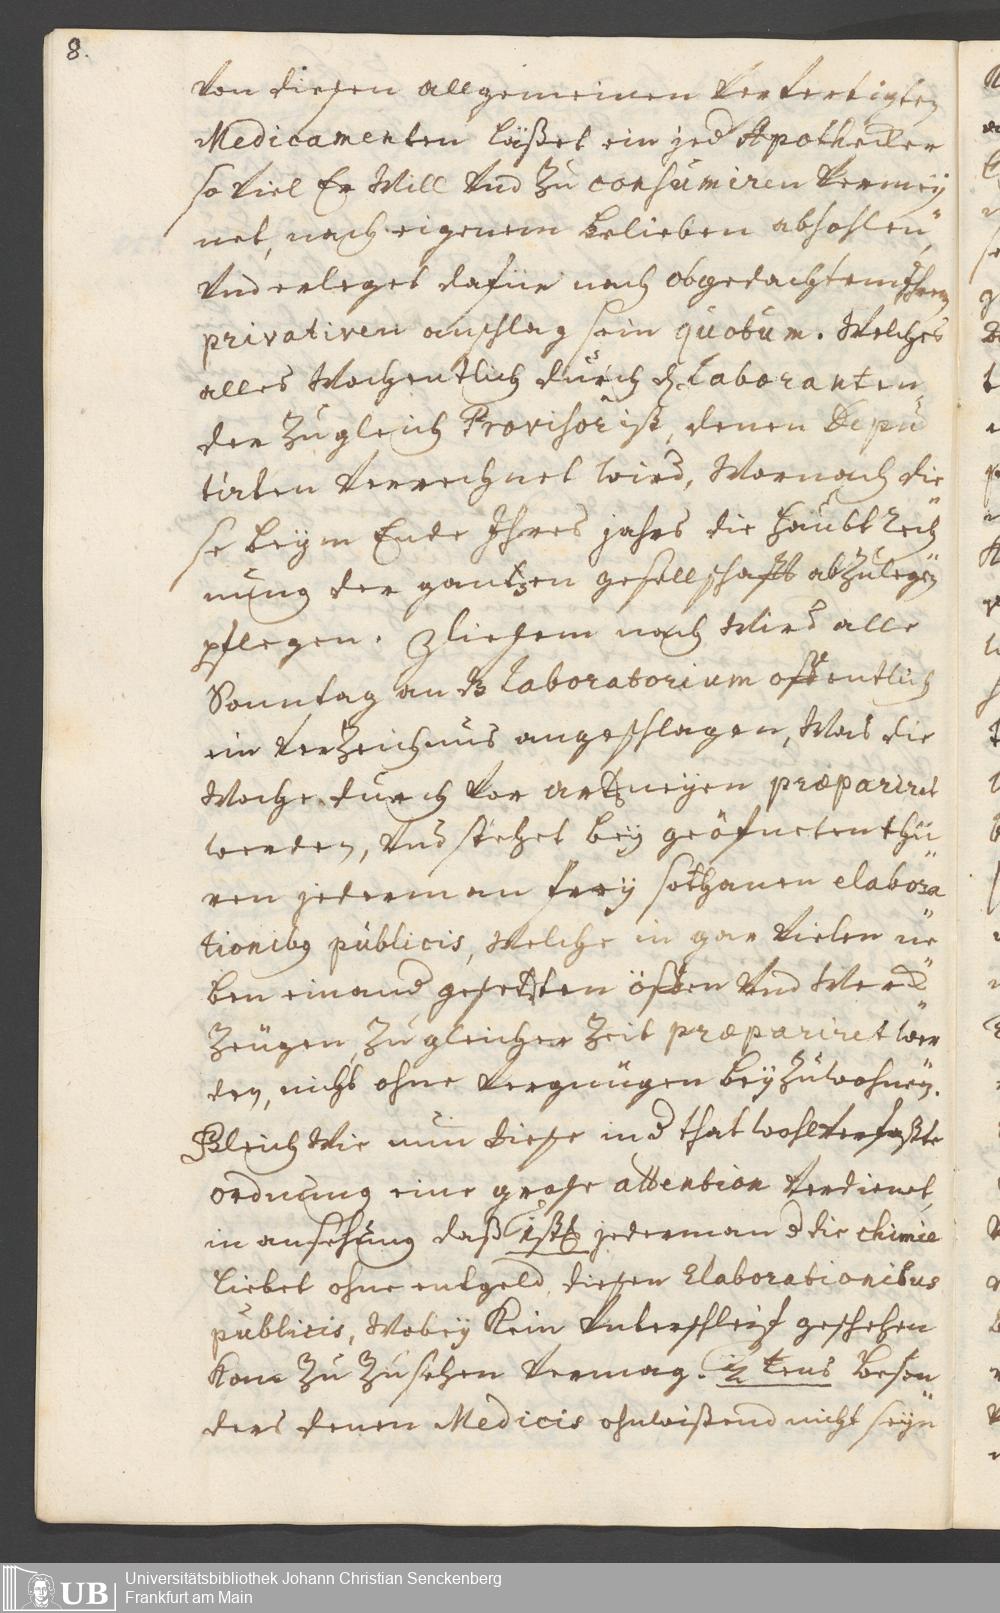 8.
Von diesen allgemeinen Verfertigten
Medicamenten läßet ein jed Apothecker
so Viel Er Will Vnd Zu consumiren Vermeÿ
net, nach eigenem belieben abhohlen,
Vnd erleget dafür nach obgedachtem Ihrem
privativen anschlag sein quotum. Welches
alles Wochentlich durch d. Laboranten
der Zugleich Provisor ist, denen Depu
tirten Verrechnet wird, Wornach die
se beÿm Ende Ihres jahrs die Haubt Rech
nung der gantzen gesellschafft abzulegen
pflegen. Zudem nach Wird alle
Sonntag an dz Laboratorium offentlich
ein Verzeichnus angeschlagen, Was die
Woche durch Vor artzneÿen præpariret
werden, Vnd stehet beÿ geöfneten thü
ren jederman freÿ sothanen elabora
tionibg publicis, Welche in gar Vielen ne
ben einand gesetzten öffen Vnd Werck
Zeügen, Zu gleicher Zeit præpariret wer
den, nicht ohne Vergnügen beÿzuwohnen.
Gleich Wie nun diese in d that wohl Verfaßte
ordnung eine große attention Verdienet,
in ansehung daß 1stl. jederman d die chimie
liebet ohne entgeld, diesen Elaborationibus
publicis, Wobeÿ Kein Vnterschleif geschehen
Kan Zu Zusehen Vermag. 2tens beson
ders denen Medicis ohnwißend nicht seÿn
Universitätsbibliothek Johann Christian Senckenberg
UB Frankfurt am Main